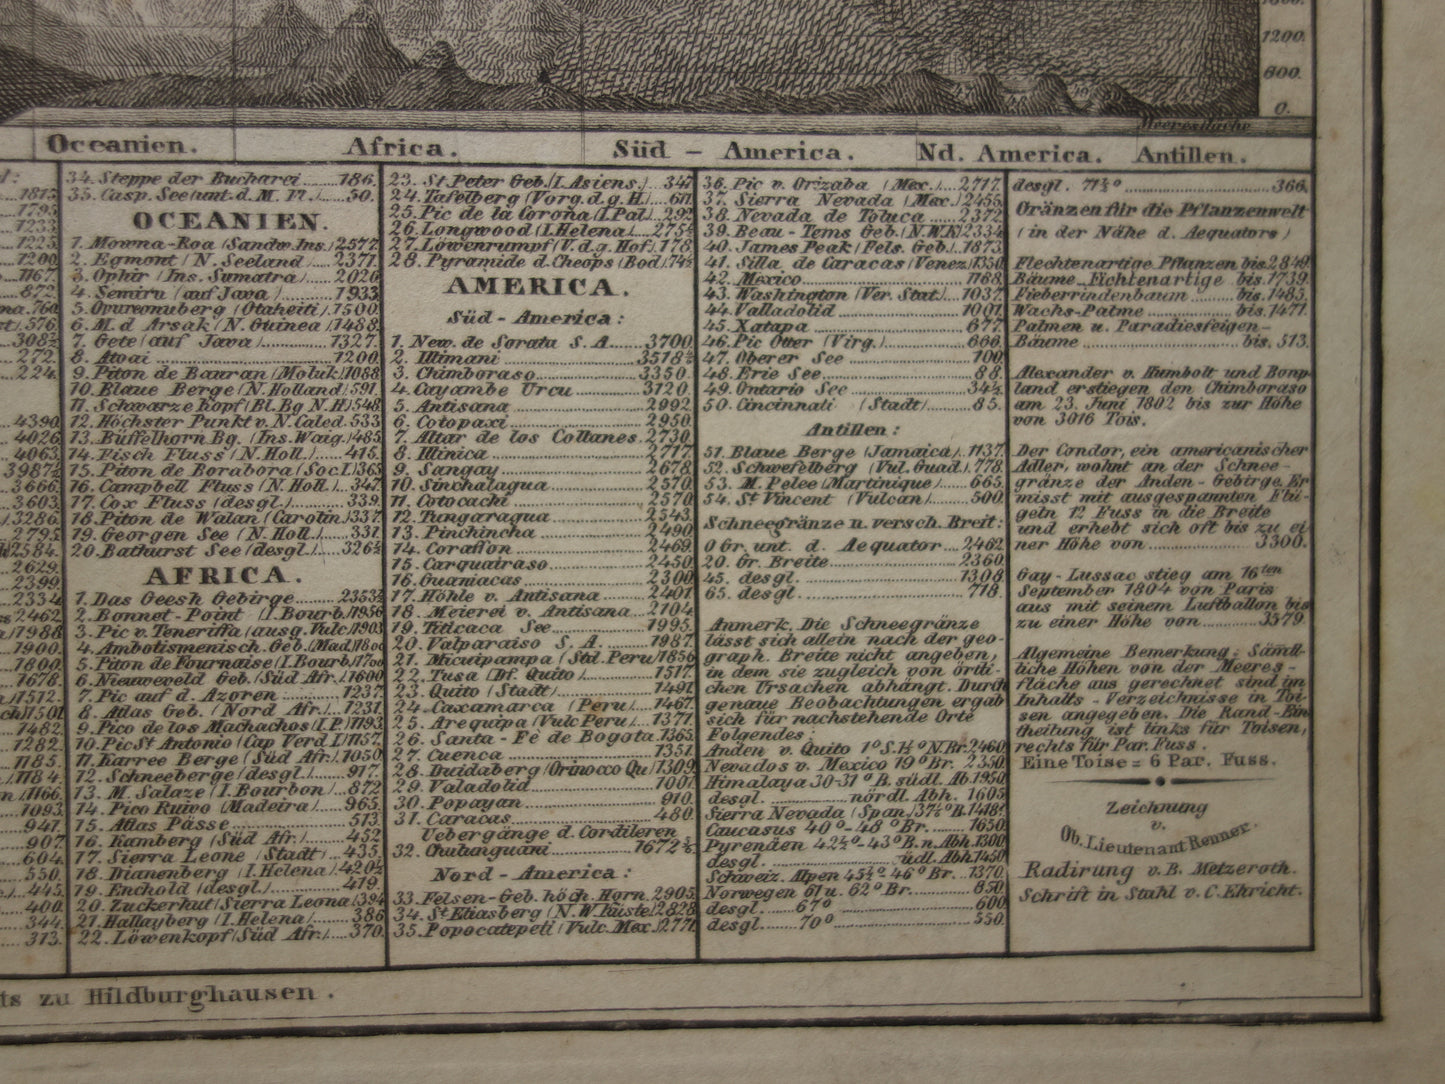 1200.
600.
0.
Meeresfläche
Oceanien. Africa. Süd - America. Nd. America. Antillen.
1813.
1795.
1233.
1225.
1200.
1167.
872.
760.
576.
308½
272.
224.
4390.
4026.
4063.
3987½
3666.
3603.
3286.
2795.
2584.
2629.
2399.
2334.
2462.
1988.
1900.
1800.
1678.
1512.
1501.
1482.
1282.
1185.
1184.
1166.
1093.
947.
907.
604.
550.
445.
400.
344.
313.
34. Steppe der Bucharei ...... 186.
35. Casp. See (unt. d. M. Fl.) ...... 50.
OCEANIEN.
1. Mowna-Roa (Sandw. Ins.) 2577.
2. Egmont (N. Seeland) ..... 2371.
3. Ophir (Ins. Sumatra) ....... 2026.
4. Semiru (auf Java) .......... 1933.
5. Oyureonuberg (Otaheiti) 1500.
6. M. d Arsak (N. Guinea) 1488.
7. Gete (auf Java) ........ 1327.
8. Atvai ........ 1200.
9. Piton de Bauran (Moluk) 1088
10. Blaue Berge (N. Holland) 591.
11. Schwarze Kopf (Bl. Bg N. H) 548.
12. Höchster Punkt v. N. Caled. 533
13. Büffelhorn Bg. (Ins. Waig.) 485.
14. Fisch Fluss (N. Holl.) ..... 415.
15. Piton de Borabora (Soc. I.) 365
16. Campbell Fluss (N. Holl.) .. 347
17. Cox Fluss (desgl.) ........ 339.
18. Piton de Walan (Carolin.) 337.
19. Georgen See (N. Holl.) .... 331.
20. Bathurst See (desgl.) ..... 326½
AFRICA.
1. Das Geesh Gebirge ...... 2353½
2. Bonnet-Point (I. Bourb.) 1956
3. Pic v. Teneriffa (ausg. Vulc) 1903
4. Ambotismenisch. Geb. (Mad.) 1800
5. Piton de Fournaise (I. Bourb.) 1700
6. Nieuweveld Geb. (Süd Afr.) 1600
7. Pic auf d. Azoren ........ 1237.
8. Atlas Geb. (Nord Afr.) .. 1231.
9. Pico de los Machachos (I. P.) 1193.
10. Pic St Antonio (Cap Verd. I.) 1157.
11. Karree Berge (Süd Afr.) 1050.
12. Schneeberge (desgl.) .... 917.
13. M. Salaze (I. Bourbon) .. 872
14. Pico Ruivo (Madeira) ..... 965.
15. Atlas Pässe ............. 513.
16. Kamberg (Süd Afr.) ..... 452.
17. Sierra Leone (Stadt) ... 435.
18. Dianenberg (I. Helena) .. 420½
19. Enchold (desgl.) ....... 419.
20. Zuckerhut (Sierra Leona) 394
21. Hallayberg (I. Helena) .... 386
22. Löwenkopf (Süd Afr.) .... 370.
23. St Peter Geb. (I. Asiens.) ... 347
24. Tafelberg (Vorg. d. g. H.) ... 611.
25. Pic de la Corona (I. Pal.) .. 292
26. Longwood (I. Helena) ..... 275½
27. Löwenrumpf (V. d. g. Hof.) 178.
28. Pyramide d. Cheops (Bod.) 74½
AMERICA.
Süd - America:
1. Nev. de Sorata S. A. ..... 3700.
2. Illimani ............. 3518½
3. Chimboraso ............ 3350.
4. Cayambe Urcu ....... 3120.
5. Antisana ............. 2992
6. Cotopaxi ............. 2950.
7. Altar de los Collanes .. 2730.
8. Illinica ............. 2717.
9. Sangay .............. 2678.
10. Sinchalagua .......... 2570.
11. Cotocachi ........... 2570
12. Tungaragua ......... 2543.
13. Pinchincha ......... 2490
14. Corasson .......... 2469.
15. Carquairaso ........ 2450
16. Guamacas ......... 2300
17. Höhle v. Antisana ...... 2401
18. Meierei v. Antisana ... 2104.
19. Titicaca See ........ 1995.
20. Valparaiso S. A. ...... 1987.
21. Micuipampa (Std. Peru) 1856
22. Tusa (Df. Quito) ....... 1517.
23. Quito (Stadt) ......... 1491.
24. Caxamarca (Peru) ..... 1467.
25. Arequipa (Vulc Peru) .. 1371.
26. Santa-Fè de Bogota. 1365.
27. Cuenca ............. 1351.
28. Duidaberg (Orinocco Qu.) 1309.
29. Valadolid ........... 1001.
30. Popayan ........... 910.
31. Caracas ............ 480.
Uebergänge d. Cordileren
32. Chulunguani ...... 1672⅚
Nord - America:
33. Felsen-Geb. höch. Horn. 2905.
34. St Eliasberg (N. W. Küste) 2828.
35. Popocatepetl (Vulc. Mex.) 2771.
36. Pic v. Orizaba (Mex.) ..... 2717.
37. Sierra Nevada (Mex.) 2455.
38. Nevada de Toluca ..... 2372.
39. Beau-Tems Geb. (N.W.K.) 2334
40. James Peak (Fels. Geb.). 1873
41. Silla. de Caracas (Venez.) 1350.
42. Mexico ............. 1168.
43. Washington (Ver. Stat.) ... 1037.
44. Valladolid ............ 1001.
45. Xatapa ............. 677.
46. Pic Otter (Virg.) ...... 666.
47. Oberer See .......... 100.
48. Erie See ............ 88.
49. Ontario See ......... 34½
50. Cincinnati (Stadt) ...... 85.
Antillen:
51. Blaue Berge (Jamaica). 1137.
52. Schwefelberg (Vul. Guad.). 778.
53. M. Pelee (Martinique) ..... 665.
54. St Vincent (Vulcan) ..... 500.
Schneegränze u. versch. Breit:
0 Gr. unt. d. Aequator ... 2462.
20. Gr. Breite ............ 2360.
45. desgl. .............. 1308.
65. desgl. .............. 718.
Anmerk. Die Schneegränze
lässt sich allein nach der geo-
graph. Breite nicht angeben,
in dem sie zugleich von örtli-
chen Ursachen abhängt. Durch
genaue Beobachtungen ergab
sich für nachstehende Orte
Folgendes:
Anden v. Quito 1° S. 1½° N. Br. 2460.
Nevados v. Mexico 19° Br. 2350.
Himalaya 30-31° B. südl. Ab. 1950.
desgl. ........ nördl. Abh. 1605
Sierra Nevada (Span.) 37½° B. 1418?
Caucasus 40°-48° Br. ...... 1650.
Pyrenäen 42½°-43° B. n. Abh. 1300.
desgl. ............ üdl. Abh. 1450
Schweiz. Alpen 45½° 46° Br. . 1370.
Norwegen 61 u. 62° Br. ...... 850.
desgl. 67° .............. 600
desgl. 70° .............. 550.
desgl. 71½° .............. 366.
Gränzen für die Pflanzenwelt
(in der Nähe d. Aequators)
Flechtenartige Pflanzen bis. 2849.
Bäume-Fichtenartige bis. 1739.
Fieberrindenbaum ...... bis. 1485.
Wachs-Palme ........ bis. 1471.
Palmen u. Paradiesfeigen-
Bäume ............. bis. 513.
Alexander v. Humbolt und Bonp-
land erstiegen den Chimboraso
am 23. Juni 1802 bis zur Höhe
von 3016 Tois.
Der Condor, ein americanischer
Adler, wohnt an der Schnee-
gränze der Anden-Gebirge. Er
misst mit ausgespannten Flü-
geln 12 Fuss in die Breite
und erhebt sich oft bis zu ei
ner Höhe von ............ 3300.
Gay-Lussac stieg am 16ten
September 1804 von Paris
aus mit seinem Luftballon bis
zu einer Höhe von ....... 3579.
Algemeine Bemerkung: Sämdt-
liche Höhen von der Meeres-
fläche aus gerechnet sind im
Inhalts-Verzeichnisse in Toi-
sen angegeben. Die Rand-Ein
theilung ist links für Toisen,
rechts für Par. Fuss.
Eine Toise = 6 Par. Fuss.
Zeichnung
v.
Ob. Lieutenant Renner.
Radirung v. B. Metzeroth.
Schrift in Stahl v. C. Ehricht.
ts zu Hildburghausen.